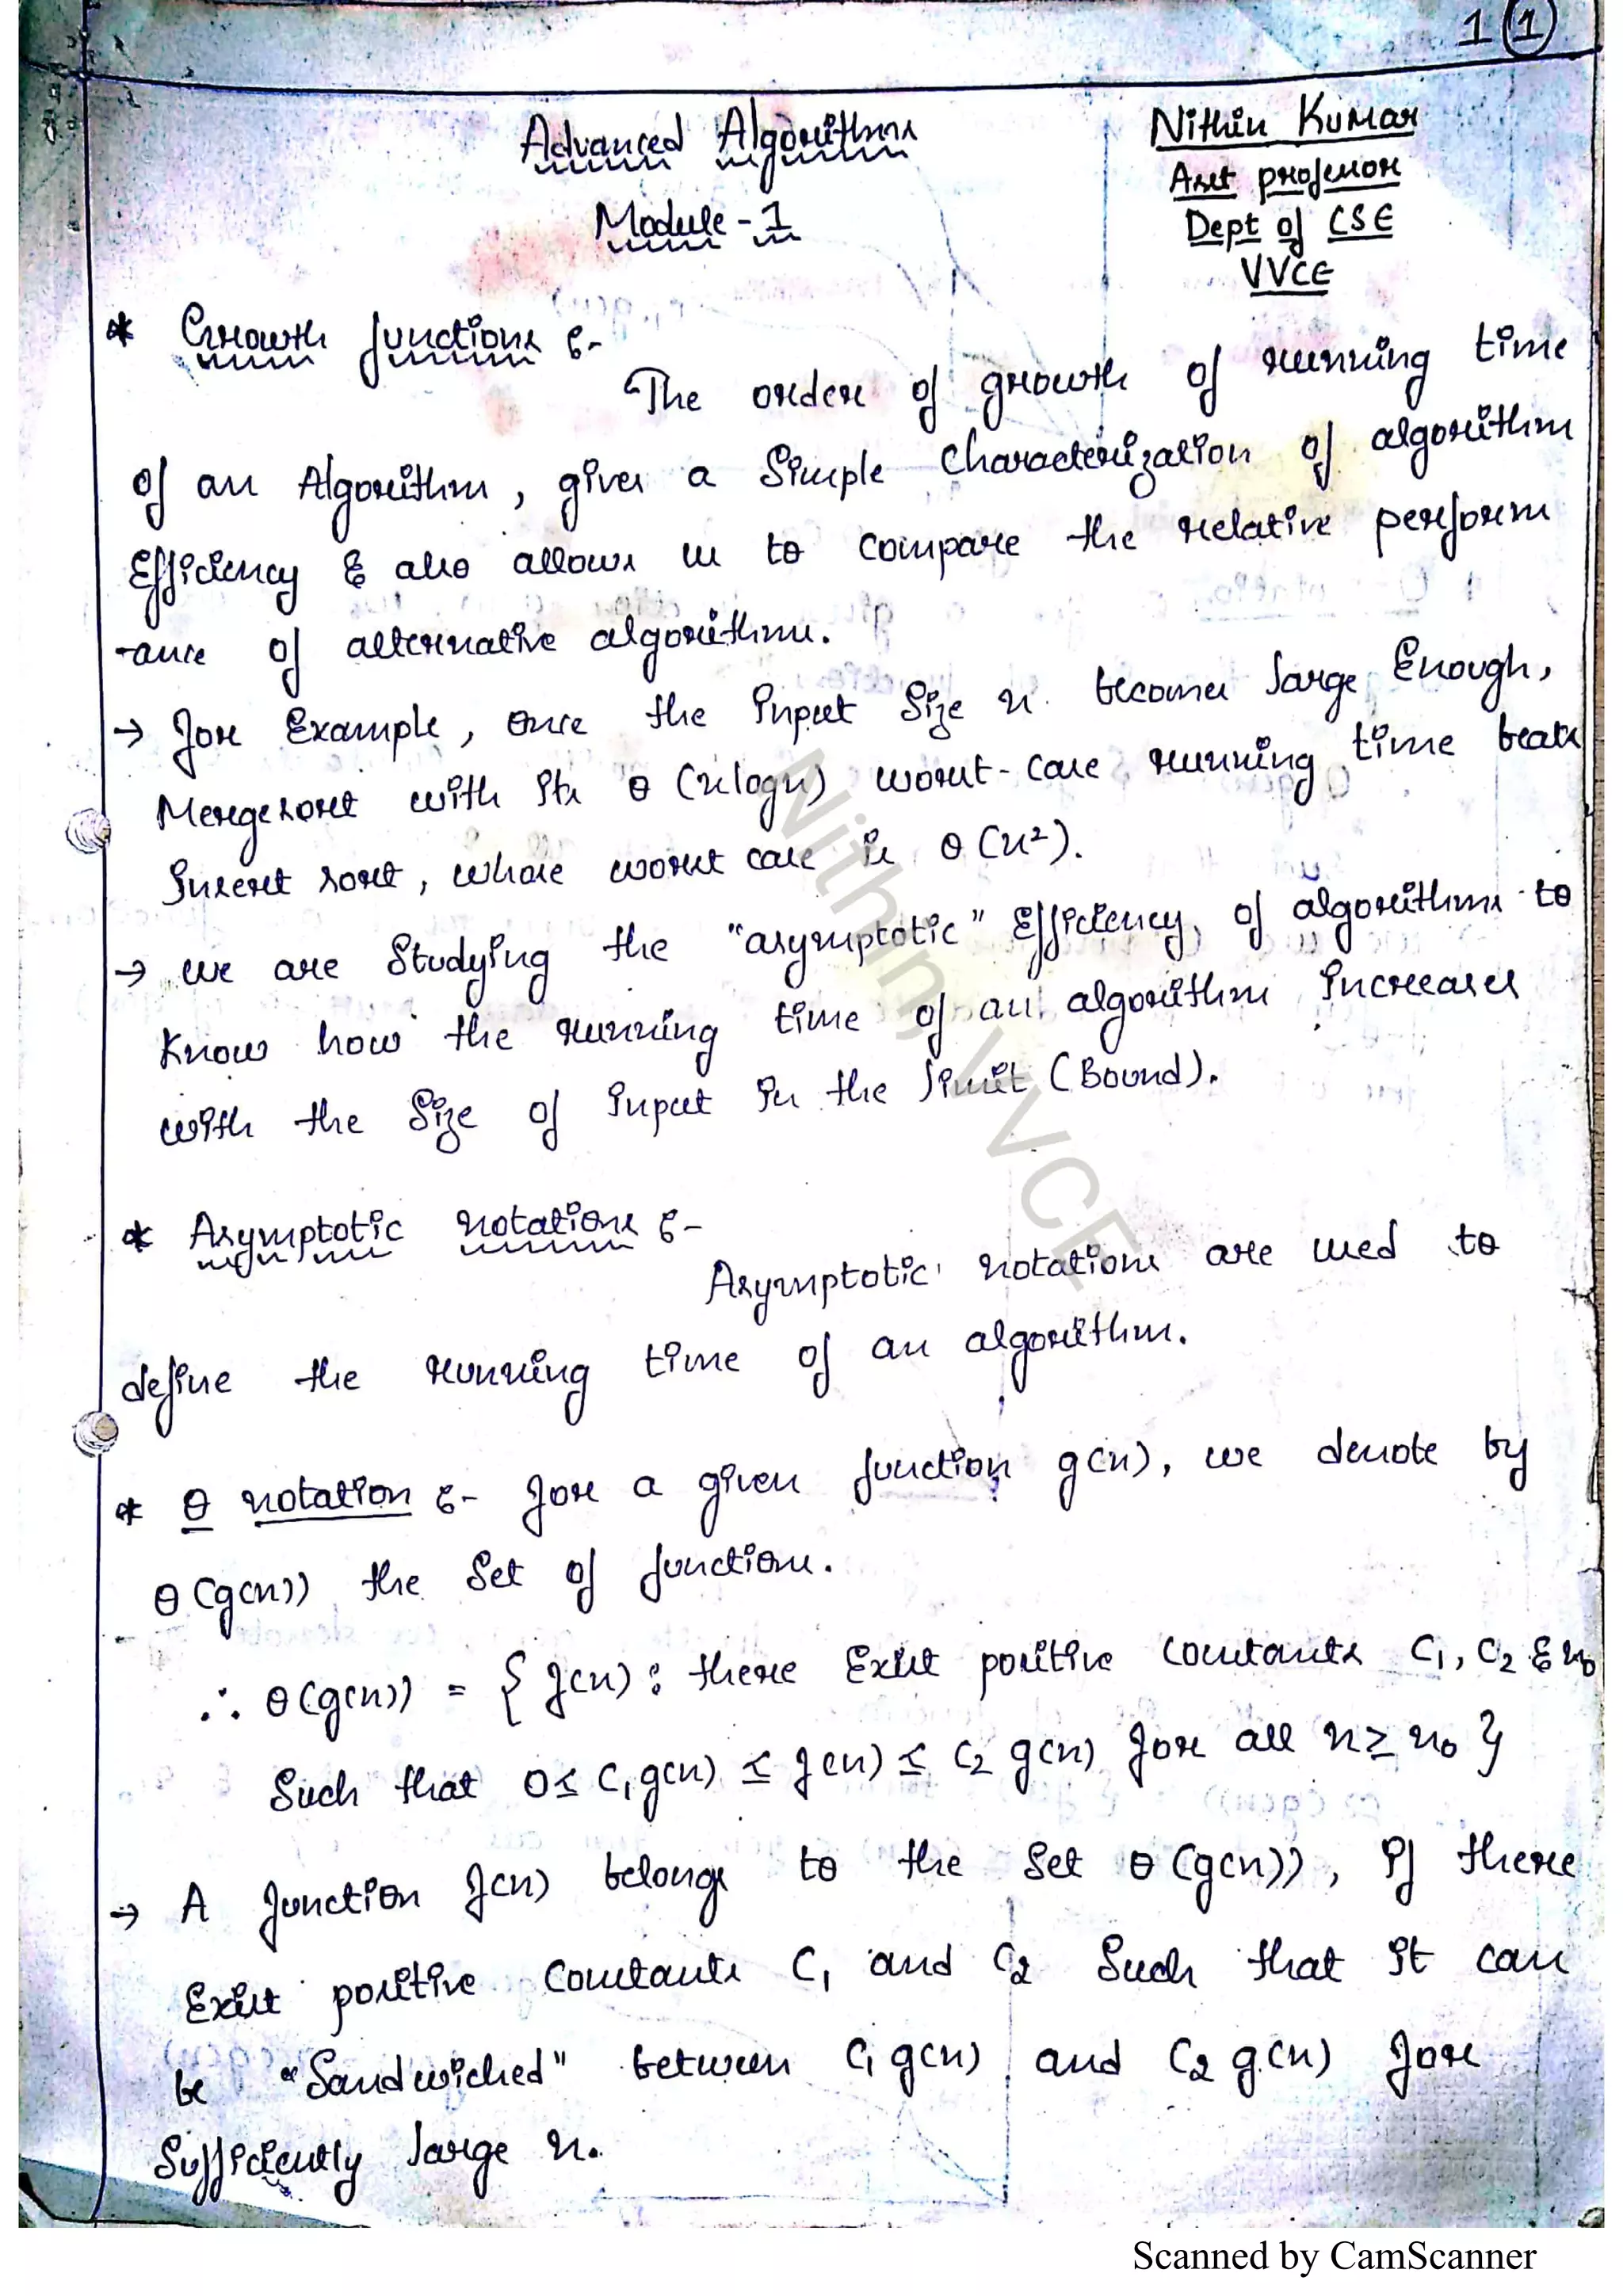 1 1
Advanced Algorithms
Module - 1
Nithin Kumar
Asst professor
Dept of CSE
VVCE
* Growth functions :-
The order of growth of running time
of an Algorithm, gives a Simple characterization of algorithm
Efficiency & also allows us to compare the relative perform
-ance of alternative algorithms.
→ for Example, once the input size n becomes large Enough,
Mergesort with its θ (nlogn) worst-case running time beats
Insert sort, whose worst case is θ (n²).
→ we are studying the "asymptotic" Efficiency of algorithms to
know how the running time of an algorithm increases
with the size of input in the limit (Bound).
* Asymptotic notations :-
Asymptotic notations are used to
define the running time of an algorithm.
* θ notation :- for a given function g(n), we denote by
θ (g(n)) the set of functions.
∴ θ(g(n)) = { f(n) : there Exist positive constants C₁, C₂ & n₀
Such that 0 ≤ C₁g(n) ≤ f(n) ≤ C₂ g(n) for all n ≥ n₀ }
→ A function f(n) belongs to the set θ (g(n)), if there
Exist positive constants C₁ and C₂ Such that it can
be "Sandwiched" between C₁ g(n) and C₂ g(n) for
Sufficiently large n.
Nithin, VVCE
Scanned by CamScanner